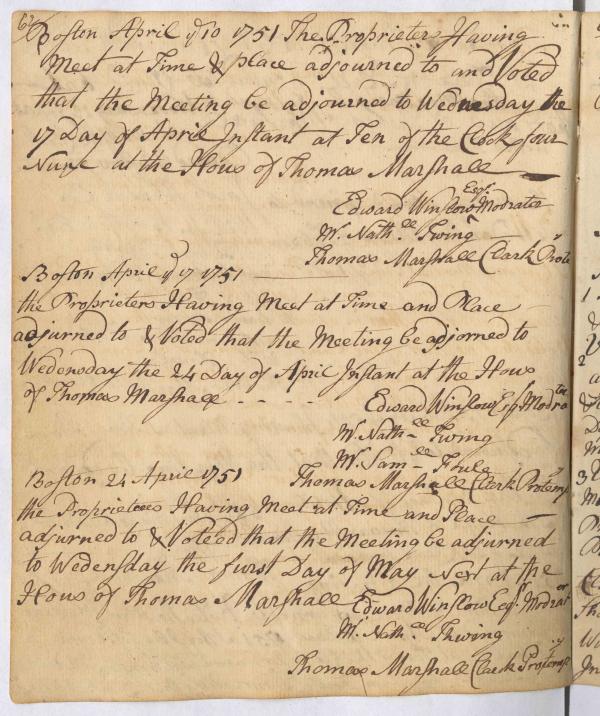 62
Boston April yͤ 10 1751 The Proprieters Having
Meet at Time & place adjourned to and Voted
that the Meeting be adjourned to Wednesday the
17 Day of April Instant at Ten of the Clock four
Nune at the Hous of Thomas Marshall
Edward Winslow Esqr. Modrater
Mr. Nathll. Twing
Thomas Marshall Clark Prote
Boston April yͤ 17 1751
the Proprieters Having Meet at Time and Place
adjurned to & Voted that the Meeting be adjorned to
Wedensday the 24 Day of April Instant at the Hous
of Thomas Marshall - - - -
Edward Winslow Esqr Modrater
Mr. Nathll Twing
Mr. Samll Foule
Boston 24 April 1751
Thomas Marshall Clark Protemp
the Proprietees Having Meet at Time and Place
adjurned to & Voteed that the Meeting be adjurned
to Wedensday the furst Day of May Next at the
Hous of Thomas Marshall
Edward Winslow Esqr. Modrator
Mr. Nathll Thwing
Thomas Marshall Clark Protemp